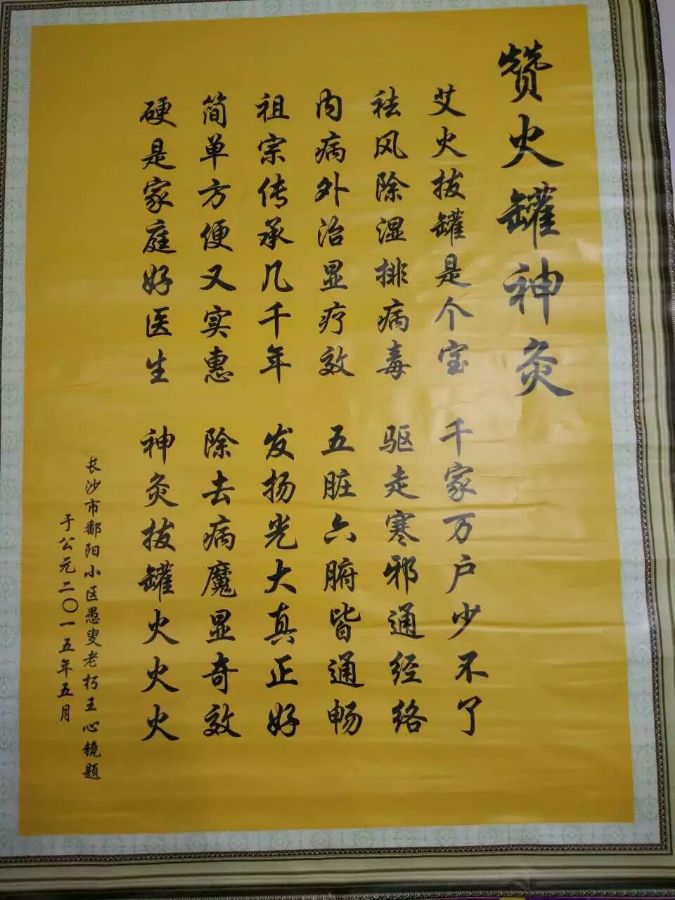 赞火罐神灸
艾火拔罐是个宝 千家万户少不了
祛风除湿排病毒 驱走寒邪通经络
内病外治显疗效 五脏六腑皆通畅
祖宗传承几千年 发扬光大真正好
简单方便又实惠 除去病魔显奇效
硬是家庭好医生 神灸拔罐火火火
长沙市鄱阳小区愚叟老朽王心镜题
于公元二〇一五年五月